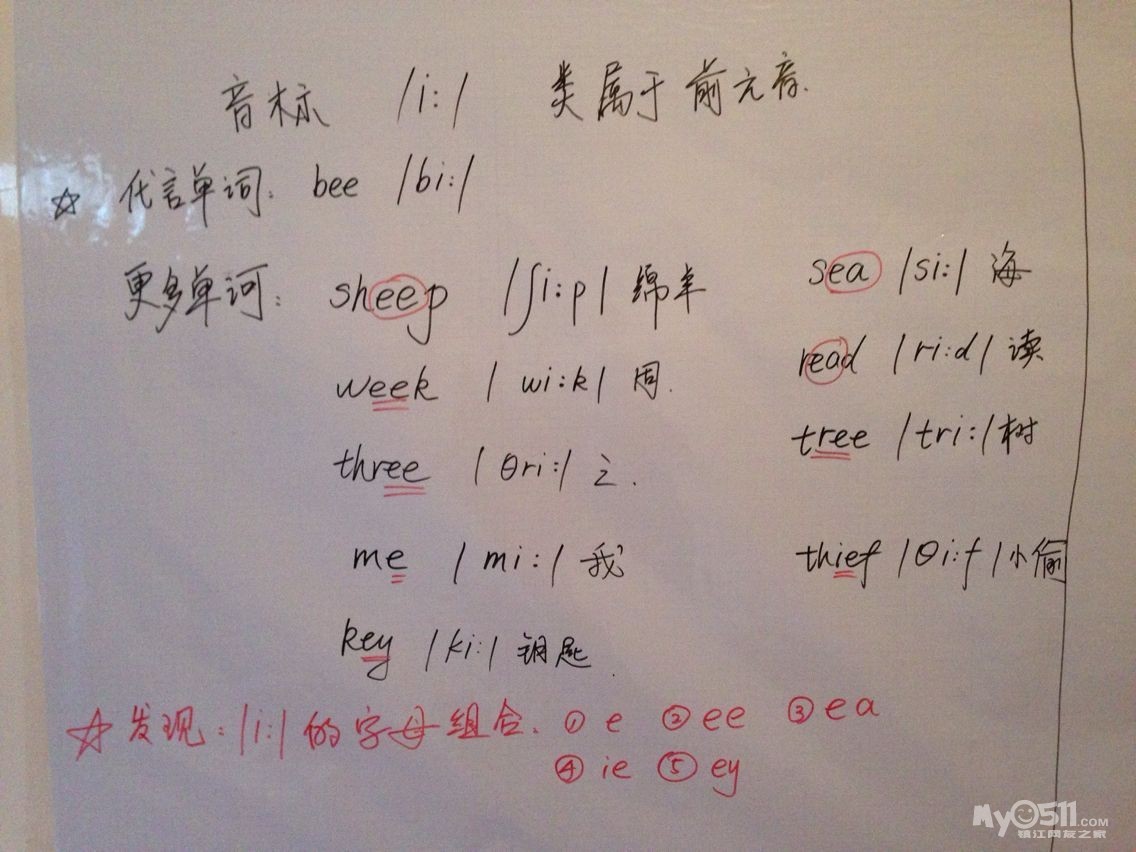 音标 /i:/ 类属于前元音.
☆ 代言单词: bee /bi:/
更多单词: sheep /ʃi:p/ 绵羊 sea /si:/ 海
week /wi:k/ 周. read /ri:d/ 读
three /θri:/ 三. tree /tri:/ 树
me /mi:/ 我 thief /θi:f/ 小偷
key /ki:/ 钥匙.
☆ 发现: /i:/ 的字母组合. ① e ② ee ③ ea
④ ie ⑤ ey
My0511.COM
镇江网友之家